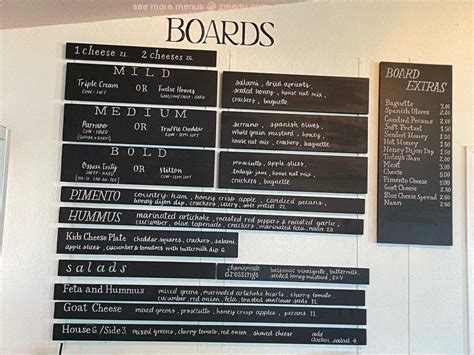 see more menus @ zmenu.com
BOARDS
1 cheese 21. 2 cheeses 26.
MILD
Triple Cream OR Twelve Hooves
COW - SOFT
salami, dried apricots,
seeded honey, house nut mix,
crackers, baguette
MEDIUM
Parrano OR Truffle Cheddar
COW - HARD COW - SEMI SOFT
serrano, spanish olives,
whole grain mustard, honey,
house nut mix, crackers, baguette
BOLD
Ossau Iraty OR Stilton
COW - SEMI SOFT
prosciutto, apple slices,
todays jam, house nut mix,
crackers, baguette
PIMENTO country ham, honey crisp apple, candied pecans,
honey dijon dip, crackers, celery, soft pretzel 21.
HUMMUS marinated artichoke, roasted red peppers & roasted garlic,
cucumber, olive tapenade, crackers, feta, naan 20.
Kids Cheese Plate cheddar squares, crackers, salami,
apple slices, cucumber & tomatoes with buttermilk dip
salads homemade dressings
balsamic vinaigrette, buttermilk,
seeded honey mustard,
Feta and Hummus mixed greens, marinated artichoke hearts, cherry tomato,
cucumber, red onion, feta, toasted sunflower seeds 11.
Goat Cheese mixed greens, prosciutto, honey crisp apples, pecans 11.
House 6/Side 3. mixed greens, cherry tomato, red onion, shaved cheese
add
chicken salad 4.
BOARD
EXTRAS
Baguette 3.00
Spanish Olives
Candied Pecans
Soft Pretzel
Seeded Honey
Hot Honey
Honey Dijon Dip
Todays Jam
Meat
Cheese
Pimento Cheese
Goat Cheese
Blue Cheese
Naan